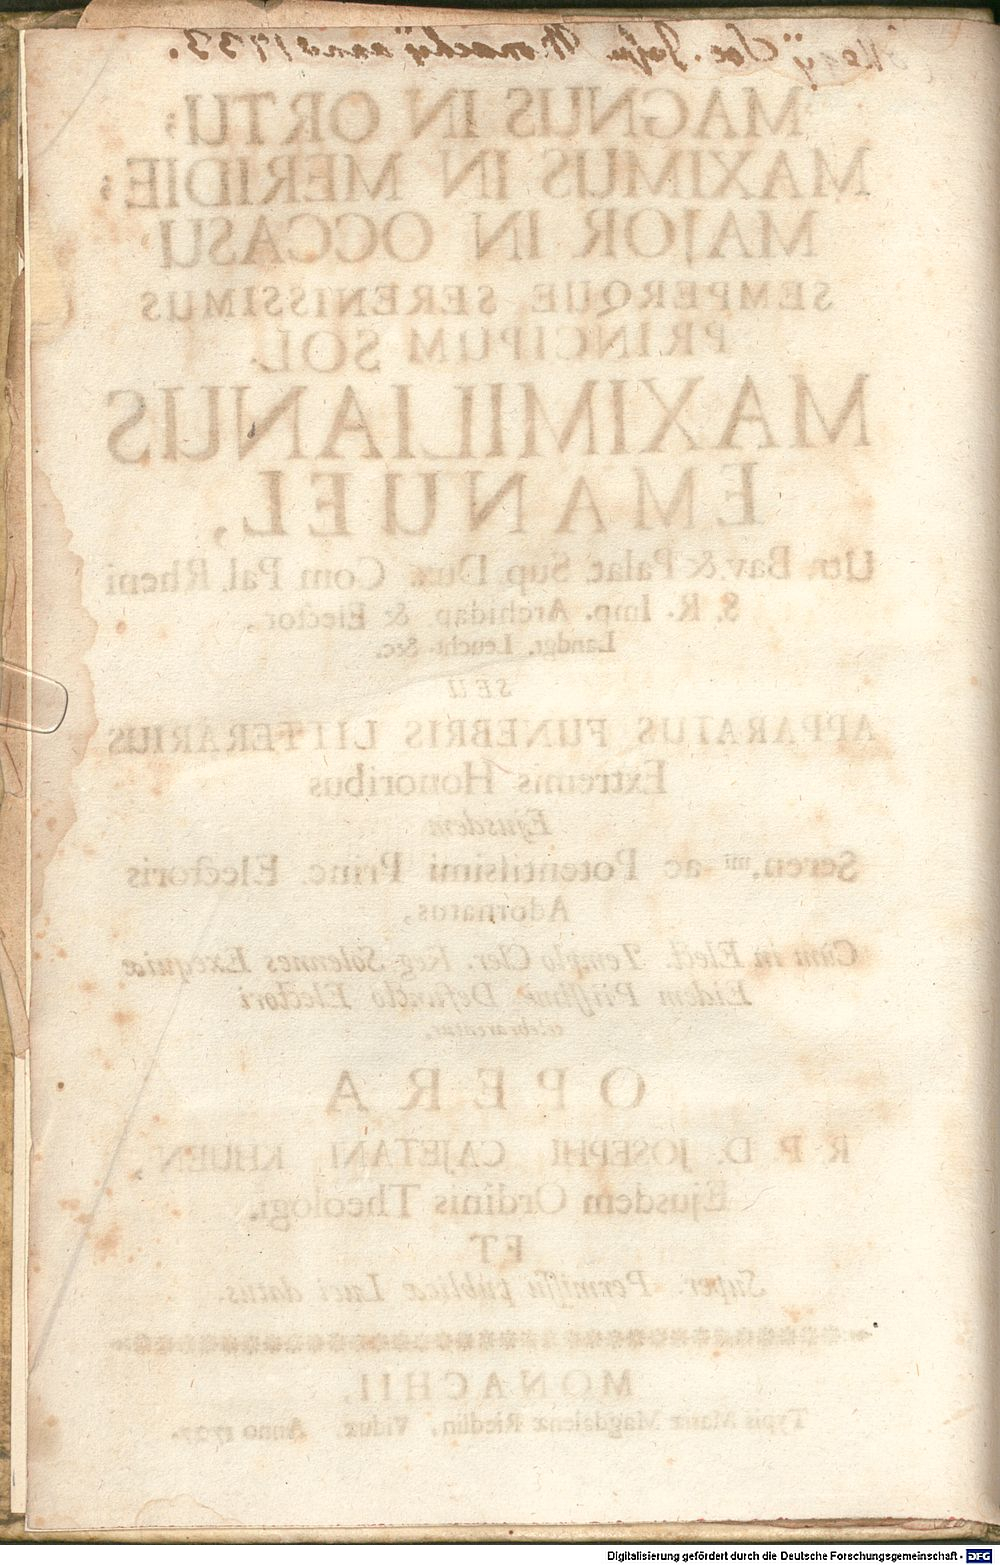 Collegÿ Soc. Jesu Monachÿ anno 1733.
MAGNUS IN ORTU;
MAXIMUS IN MERIDIE;
MAJOR IN OCCASU
SEMPERQUE SERENISSIMUS
PRINCIPUM SOL
MAXIMILIANUS
EMANUEL,
Utr. Bav. & Palat. Sup. Dux, Com Pal. Rheni
S. R. Imp. Archidap. & Elector,
Landgr. Leucht. &c.
SEU
APPARATUS FUNEBRIS LITTERARIUS
Extremis Honoribus
Ejusdem
Seren.mi ac Potentissimi Princ. Electoris
Adornatus,
Cùm in Elect. Templo Cler. Reg. Solennes Exequiæ
Eidem Piissimè Defuncto Electori
celebrarentur,
OPERA
R. P. D. JOSEPHI CAJETANI KHUEN,
Ejusdem Ordinis Theologi.
ET
Super. Permissu publicæ Luci datus.
MONACHII,
Typis Mariæ Magdalenæ Riedlin, Viduæ, Anno 1727.
Digitalisierung gefördert durch die Deutsche Forschungsgemeinschaft - DFG